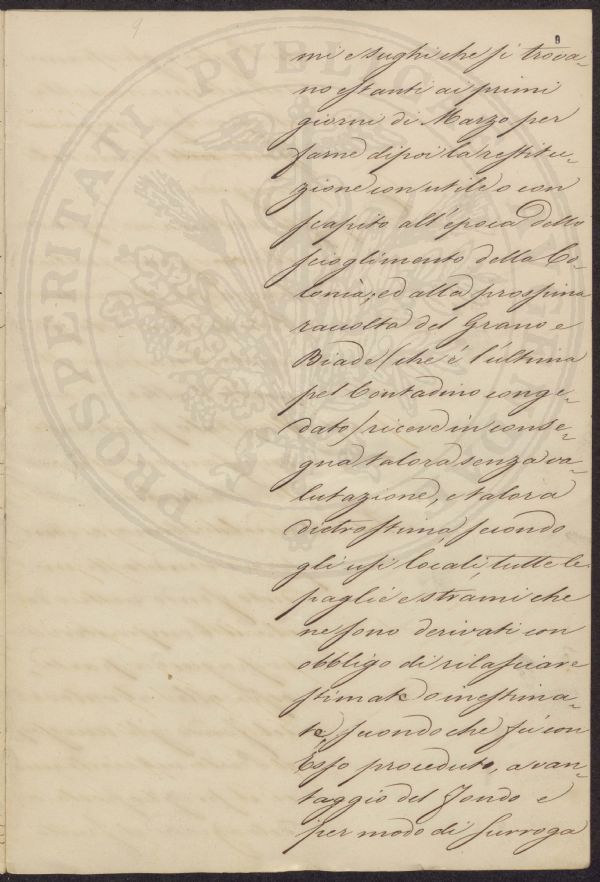 9
9
mi e sughi che si trova-
no estanti ai primi
giorni di Marzo per
farne dipoi la restitu-
zione con utile o con
scapito all'epoca dello
scioglimento della Co-
lonia; ed alla prossima
raccolta del Grano e
Biade (che è l'ultima
pel Contadino conge-
dato) riceve in conse-
gna talora senza va-
lutazione, e talora
dietro stima, secondo
gli usi locali, tutte le
paglie e strami che
ne sono derivati con
obbligo di rilasciare
stimate o inestima-
te, secondo che fù con
Esso proceduto, a van-
taggio del Fondo e
per modo di surroga
PROSPERITATI PVBLICAE